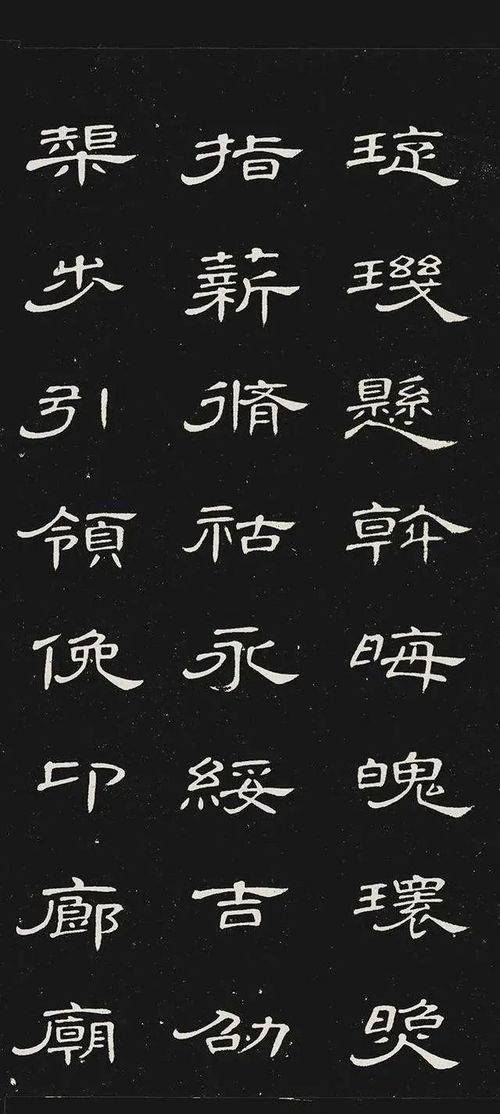 琁璣懸斡晦魄環照
指薪脩祜永綏吉劭
榘步引領俛卬廊廟